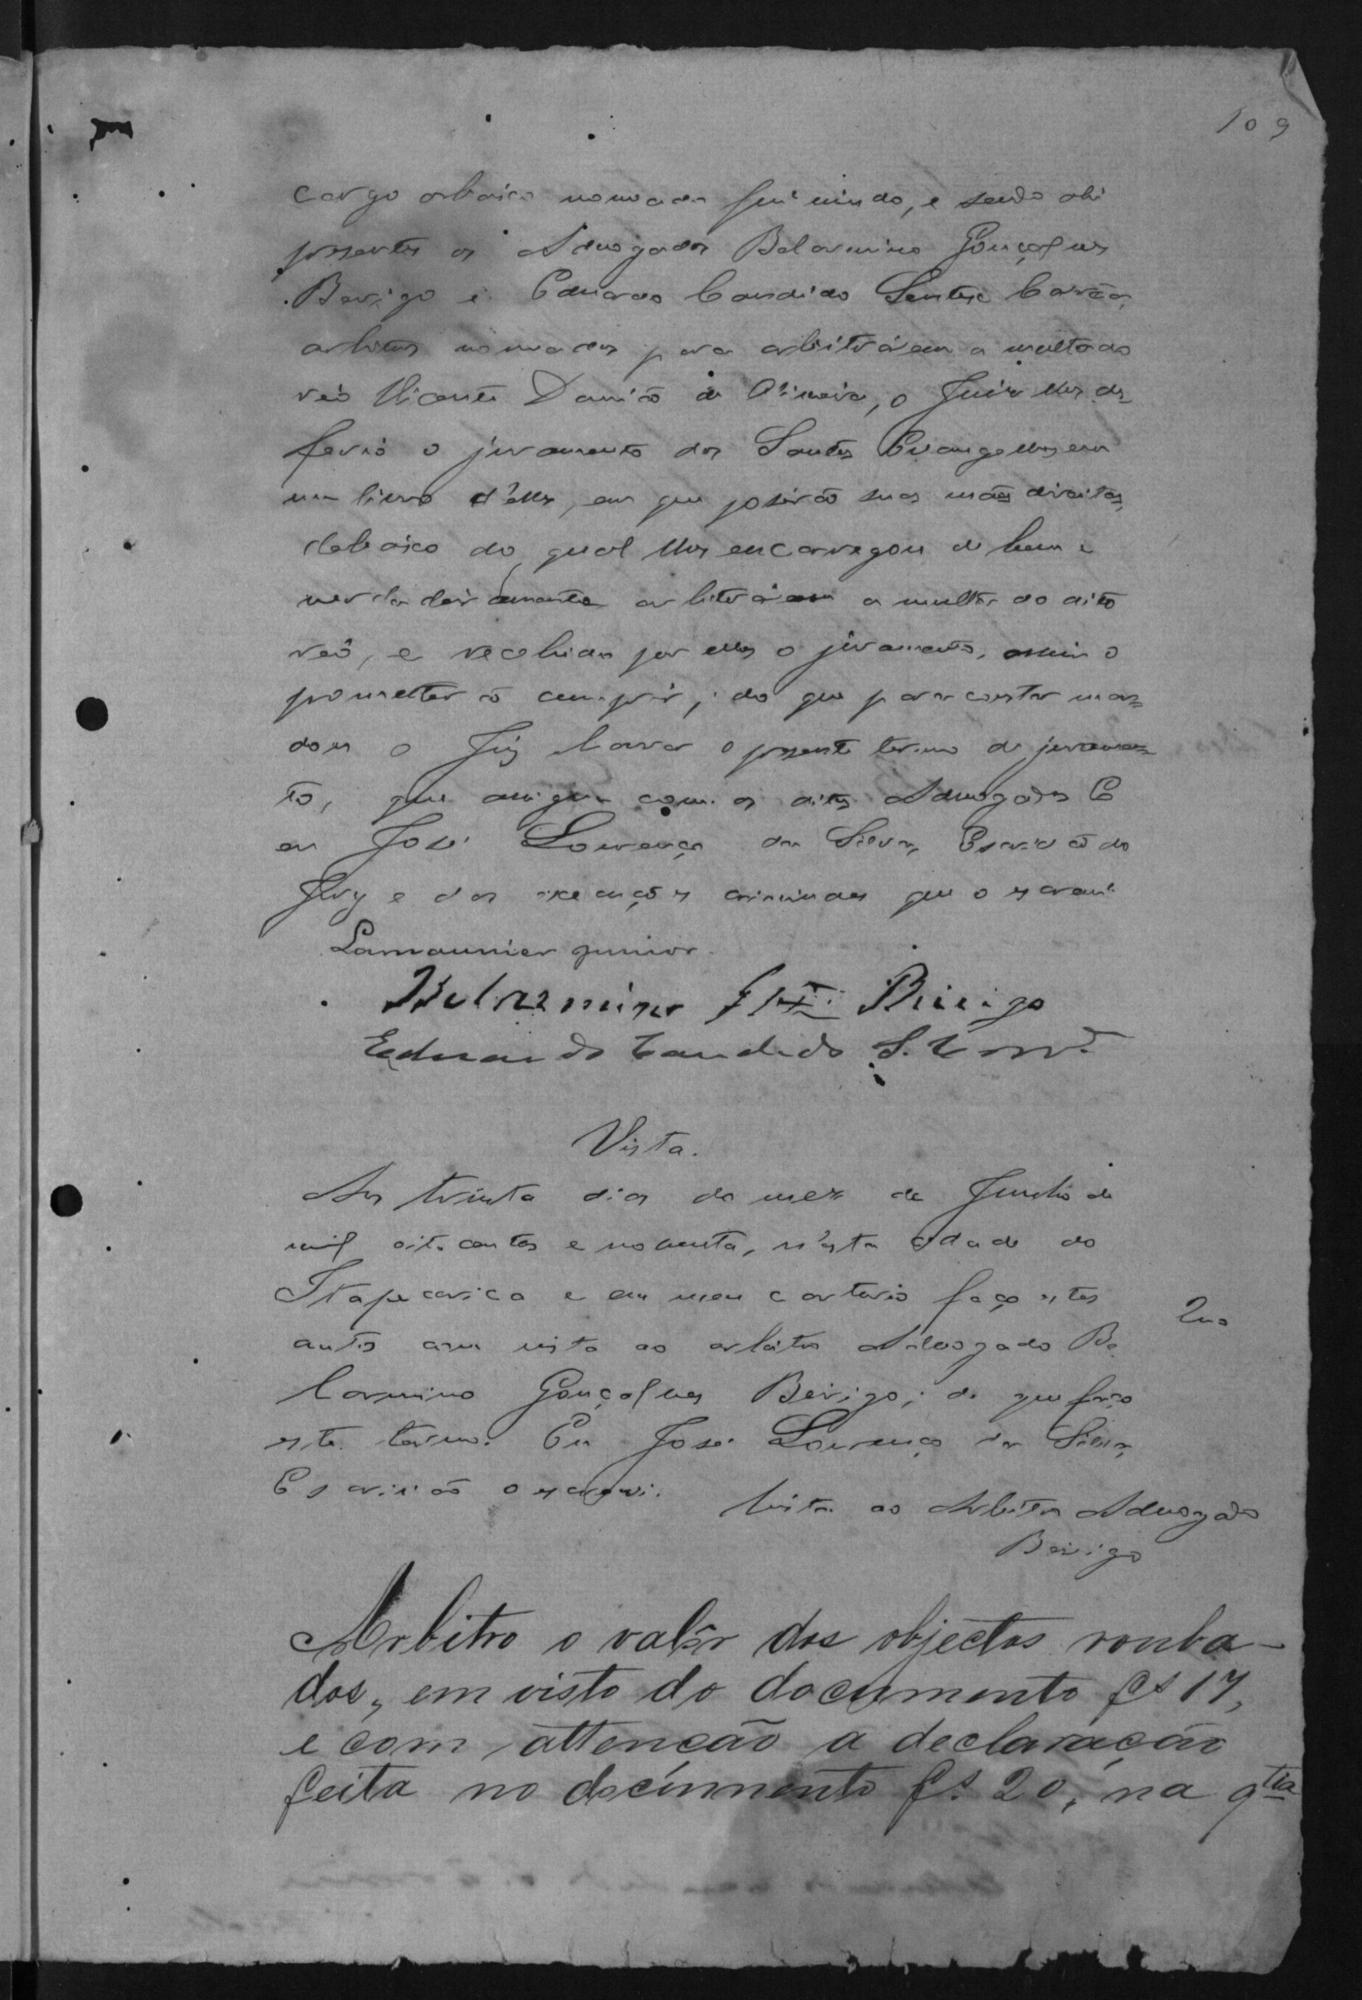 109
cargo abaixo nomeado fui vindo, e sendo ahi
presentes os Advogados Belarmino Gonçalves
Berigo e Eduardo Candido
arbitros nomeados para arbitrárem a multa do
réo Vicente Damião de Oliveira, o Juiz lhes de-
ferio o juramento dos Santos Evangelhos em
um livro d'elles, em que poserão suas mãos direitas,
debaixo do qual lhes encarregou de bem e
verdadeiramente arbitrárem a multa do dito
réo, e recebido por elles o juramento, assim o
prometterão cumprir; do que para constar man-
dou o Juiz lavrar o presente termo de juramen-
to, que assigna com os ditos Advogados E
eu José Lourenço da Silva, Escrivão do
Jury e das execuções criminaes que o escrevi
Lamounier Junior.
Belarmino Berigo
Eduardo Candido S.
Vista.
Aos trinta dias do mez de Junho de
mil oito centos e noventa, n'esta cidade do
Itapecerica e em meu cartorio faço estes
autos com vista ao arbitro Advogado Be
larmino Gonçalves Berigo; do que faço
este termo. Eu José Lourenço da Silva,
Escrivão o escrevi.
Vista ao Arbitro Advogado
Berigo
Arbitro o valôr dos objectos rouba-
dos, em visto do documento fs 17,
e com attenção a declaração
feita no documento fs. 20, na qtia